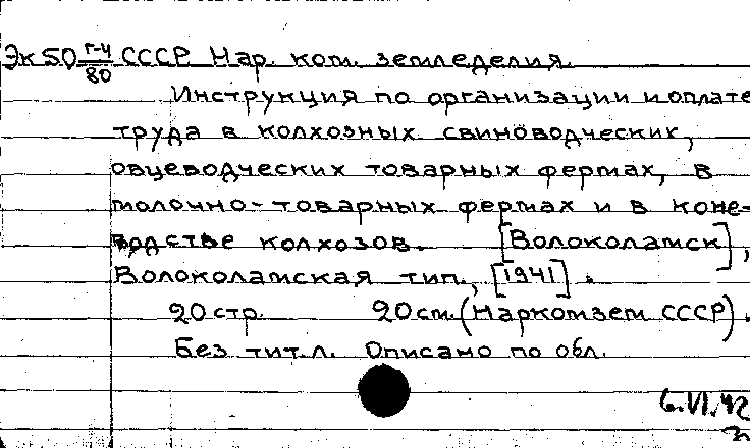 Эк50 г-4/80 СССР. Нар. ком. земледелия.
Инструкция по организации и оплате
труда в колхозных свиноводческих,
овцеводческих товарных фермах, в
молочно-товарных фермах и в коне-
водстве колхозов. [Волоколамск],
Волоколамская тип., [1941].
20 стр. 20 см. (Наркомзем СССР).
Без тит. л. Описано по обл.
6.VI.42